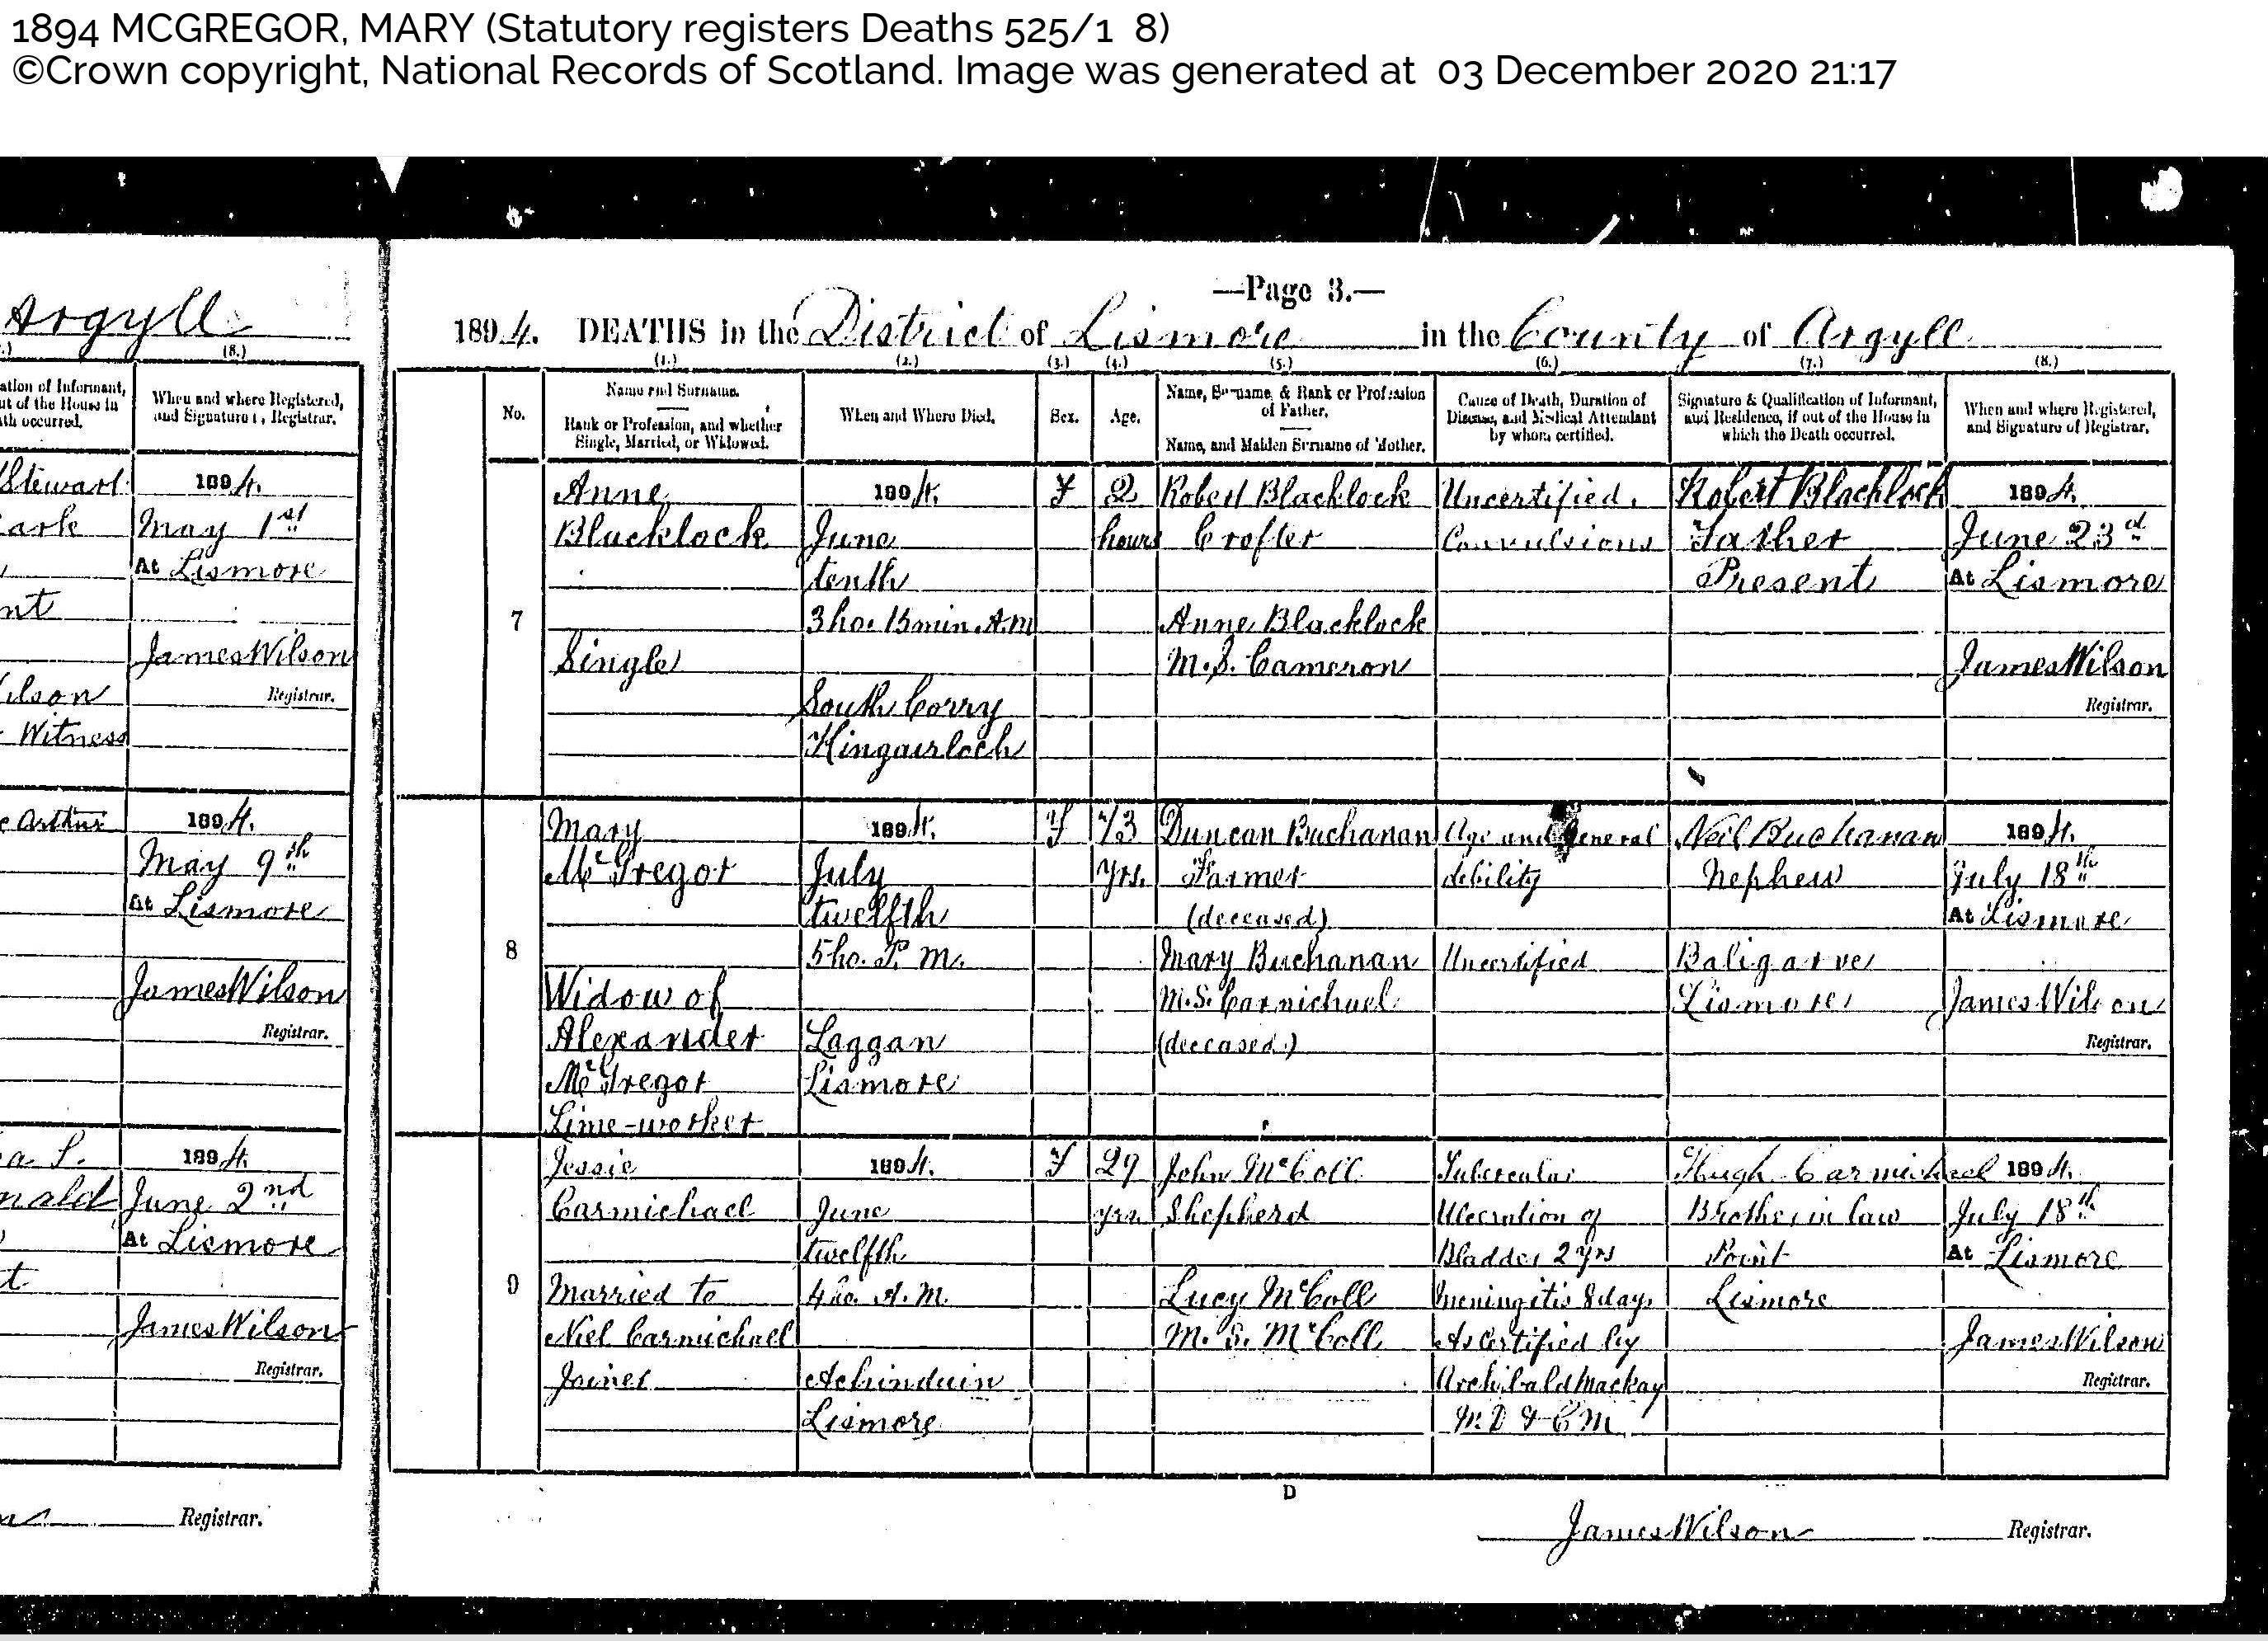 1894 MCGREGOR, MARY (Statutory registers Deaths 525/1 8)
©Crown copyright, National Records of Scotland. Image was generated at 03 December 2020 21:17
Argyll
(8.)
ation of Informant,
ut of the House in
th occurred.
When and where Registered,
and Signature Registrar.
Stewart
ark
nt
ilson
Witness
1894.
May 1st
At Lismore
James Wilson
Registrar.
c Arthur
1894.
May 9th
At Lismore
James Wilson
Registrar.
a S.
nald
t
1894.
June 2nd
At Lismore
James Wilson
Registrar.
Registrar.
—Page 3.—
1894. DEATHS in the District of Lismore in the County of Argyll
(1.) (2.) (3.) (4.) (5.) (6.) (7.) (8.)
No.
Name and Surname.
Rank or Profession, and whether
Single, Married, or Widowed.
When and Where Died.
Sex.
Age.
Name, Surname, & Rank or Profession
of Father.
Name, and Maiden Surname of Mother.
Cause of Death, Duration of
Disease, and Medical Attendant
by whom certified.
Signature & Qualification of Informant,
and Residence, if out of the House in
which the Death occurred.
When and where Registered,
and Signature of Registrar.
7
Anne
Blacklock
Single
1894.
June
tenth
3 ho. 15 min. A.M
South Corry
Kingairloch
F
2
hours
Robert Blacklock
Crofter
Anne Blacklock
M.S. Cameron
Uncertified.
Convulsions
Robert Blacklock
Father
Present
1894.
June 23d
At Lismore
James Wilson
Registrar.
8
Mary
McGregor
Widow of
Alexander
McGregor
Lime-worker
1894.
July
twelfth
5 ho. P. M.
Laggan
Lismore
F
73
yrs.
Duncan Buchanan
Farmer
(deceased)
Mary Buchanan
M.S. Carmichael
(deceased.)
Age and General
debility
Uncertified
Neil Buchanan
Nephew
Baligarve
Lismore
1894.
July 18th
At Lismore
James Wilson
Registrar.
9
Jessie
Carmichael
Married to
Niel Carmichael
Joiner
1894.
June
twelfth
4 ho. A. M.
Achinduin
Lismore
F
29
yrs.
John McColl
Shepherd
Lucy McColl
M. S. McColl
Tubercular
Ulceration of
Bladder 2 yrs
Meningitis 8 days
As certified by
Archibald Mackay
M. D & C M.
Hugh Carmichael
Brother in law
Point
Lismore
1894.
July 18th
At Lismore
James Wilson
Registrar.
D
James Wilson Registrar.